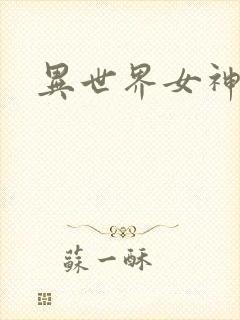 異世界女神
蘇一酥